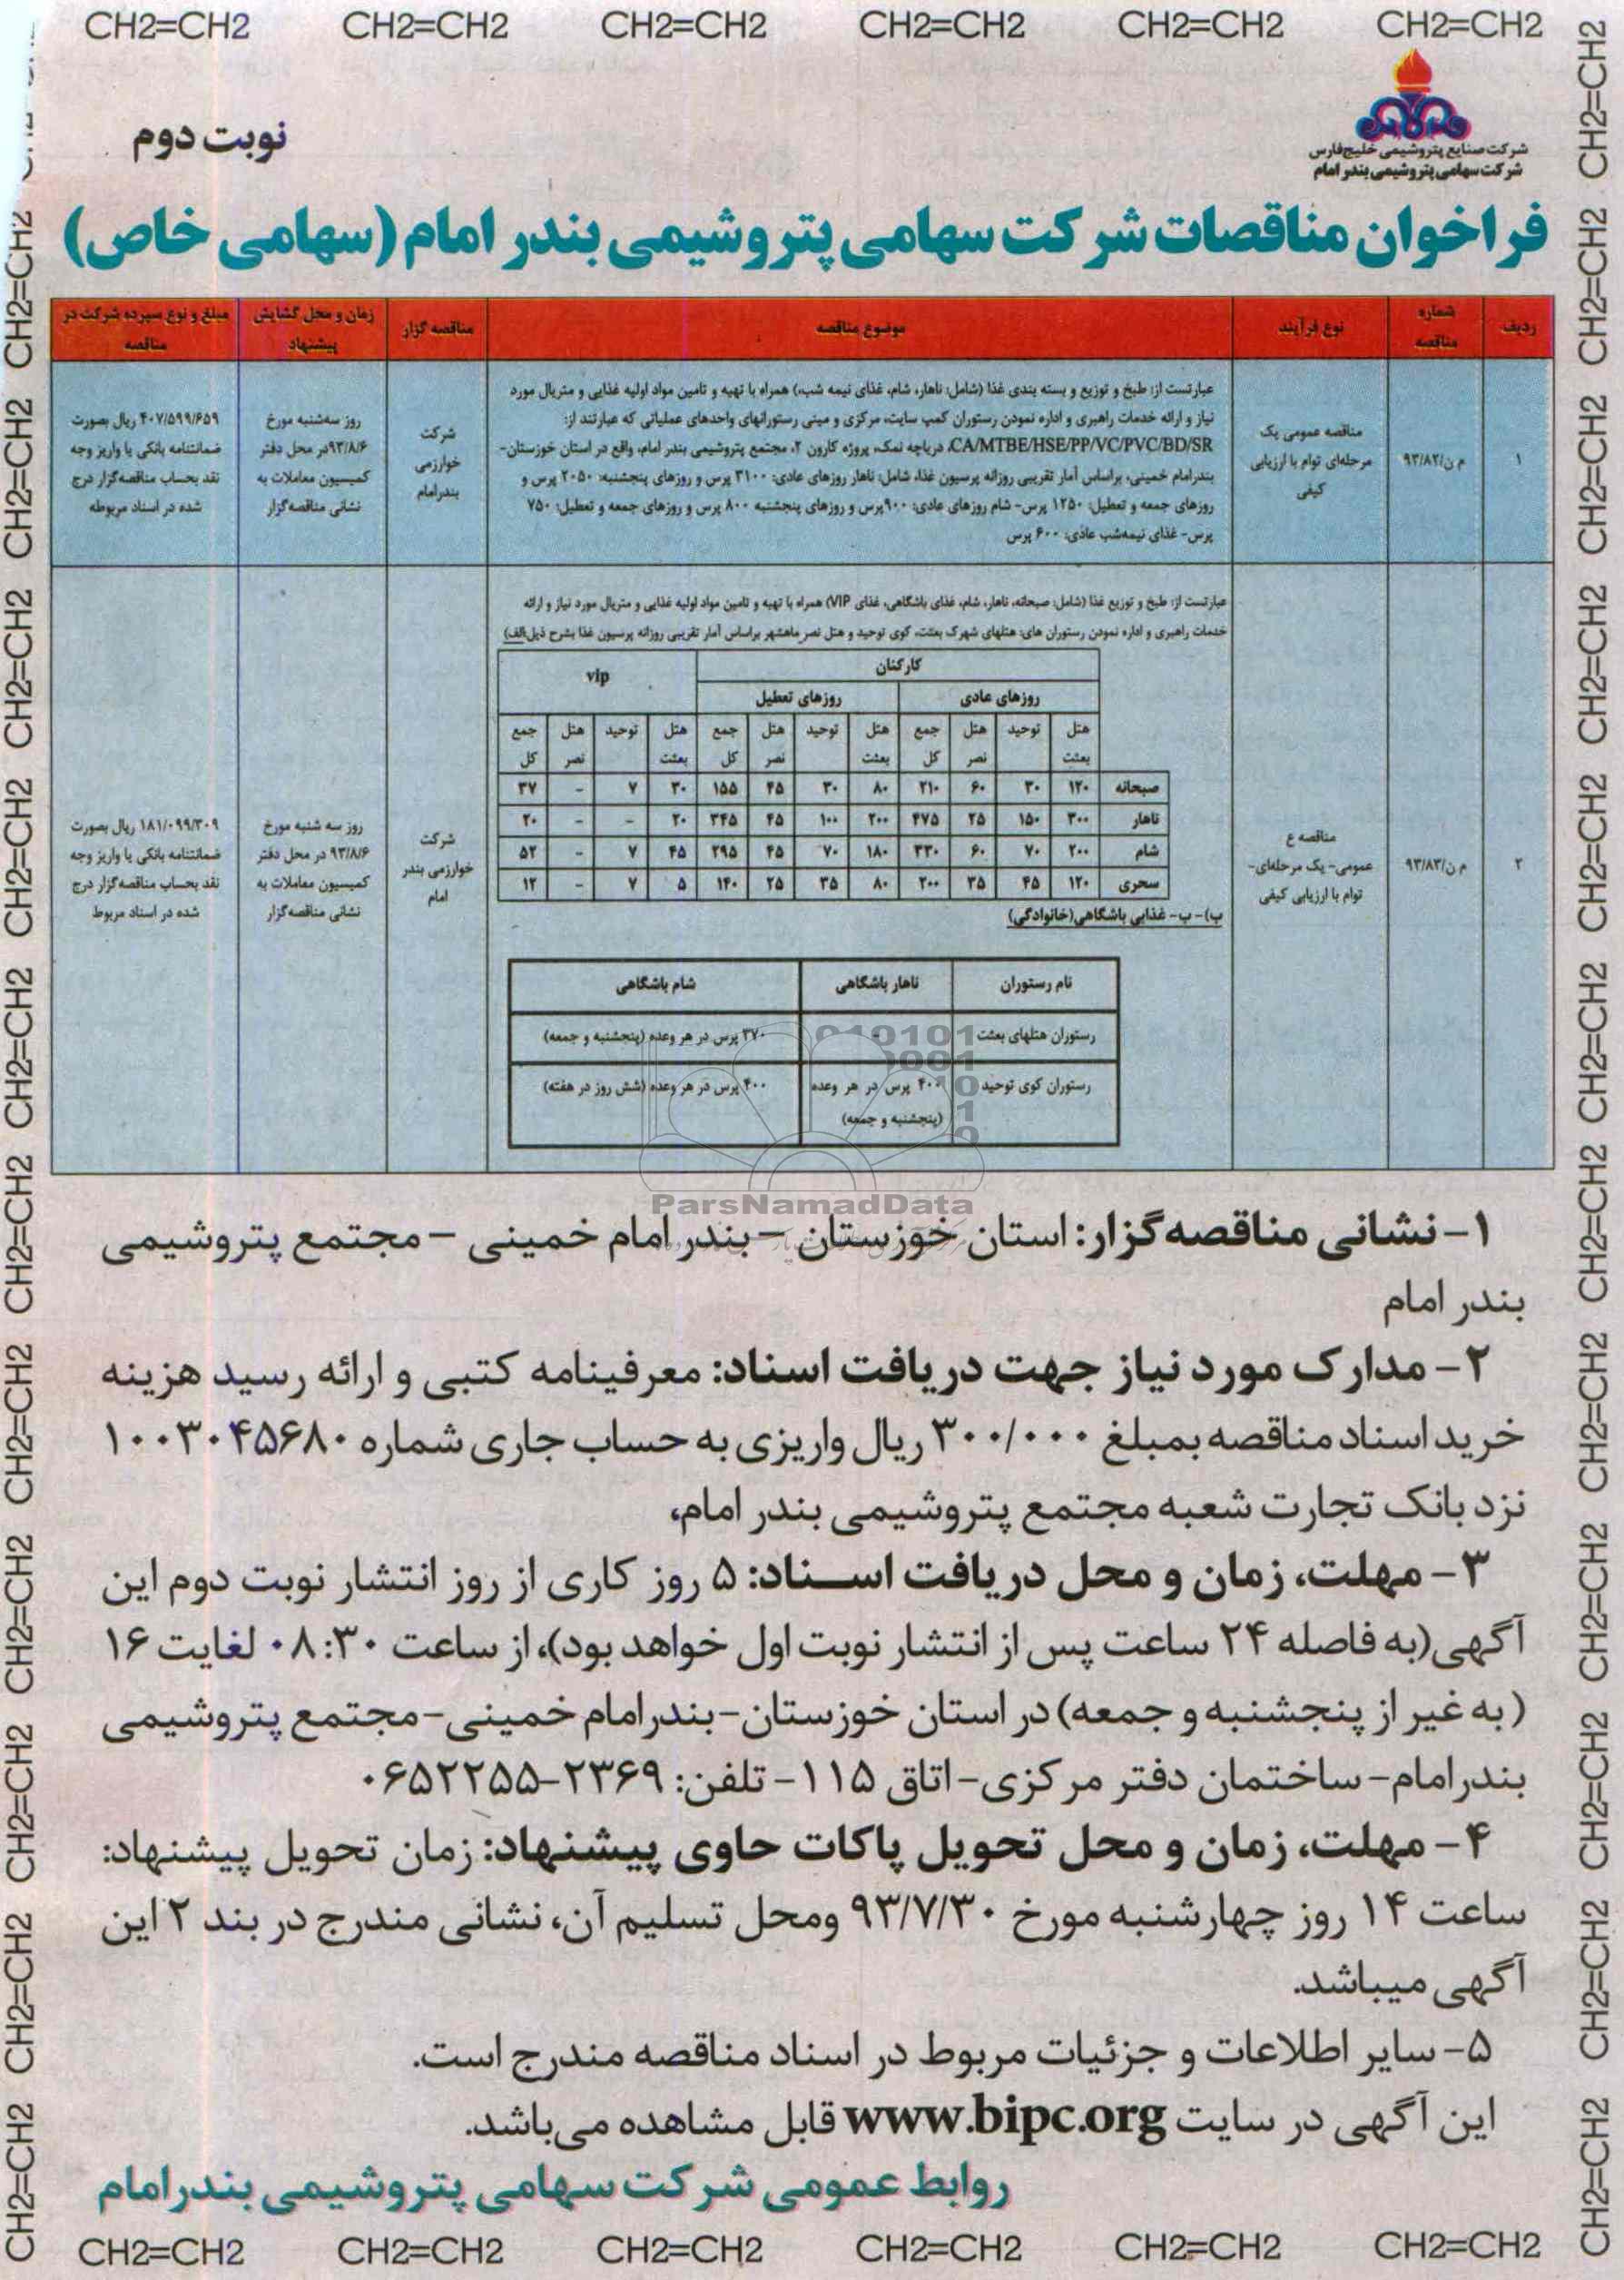 CH2=CH2 CH2=CH2 CH2=CH2 CH2=CH2 CH2=CH2 CH2=CH2
شرکت صنایع پتروشیمی خلیج‌فارس
شرکت سهامی پتروشیمی بندر امام
نوبت دوم
فراخوان مناقصات شرکت سهامی پتروشیمی بندر امام (سهامی خاص)
ردیف | شماره مناقصه | نوع فرآیند | موضوع مناقصه | مناقصه گزار | زمان و محل گشایش پیشنهاد | مبلغ و نوع سپرده شرکت در مناقصه
۱
م ن/۹۳/۸۲
مناقصه عمومی یک
مرحله‌ای توام با ارزیابی
کیفی
عبارتست از: طبخ و توزیع و بسته بندی غذا (شامل: ناهار، شام، غذای نیمه شب،) همراه با تهیه و تامین مواد اولیه غذایی و متریال مورد
نیاز و ارائه خدمات راهبری و اداره نمودن رستوران کمپ سایت، مرکزی و مینی رستورانهای واحدهای عملیاتی که عبارتند از:
CA/MTBE/HSE/PP/VC/PVC/BD/SR، دریاچه نمک، پروژه کارون ۲، مجتمع پتروشیمی بندر امام، واقع در استان خوزستان-
بندرامام خمینی، براساس آمار تقریبی روزانه پرسیون غذا، شامل: ناهار روزهای عادی: ۳۱۰۰ پرس و روزهای پنجشنبه: ۲۰۵۰ پرس و
روزهای جمعه و تعطیل: ۱۲۵۰ پرس- شام روزهای عادی: ۹۰۰پرس و روزهای پنجشنبه ۸۰۰ پرس و روزهای جمعه و تعطیل: ۷۵۰
پرس- غذای نیمه‌شب عادی: ۶۰۰ پرس
شرکت
خوارزمی
بندرامام
روز سه‌شنبه مورخ
۹۳/۸/۶در محل دفتر
کمیسیون معاملات به
نشانی مناقصه‌گزار
۴۰۷/۵۹۹/۶۵۹ ریال بصورت
ضمانتنامه بانکی یا واریز وجه
نقد بحساب مناقصه‌گزار درج
شده در اسناد مربوطه
۲
م ن/۹۳/۸۳
مناقصه ع
عمومی- یک مرحله‌ای-
توام با ارزیابی کیفی
عبارتست از: طبخ و توزیع غذا (شامل: صبحانه، ناهار، شام، غذای باشگاهی، غذای VIP) همراه با تهیه و تامین مواد اولیه غذایی و متریال مورد نیاز و ارائه
خدمات راهبری و اداره نمودن رستوران های: هتلهای شهرک بعثت، کوی توحید و هتل نصر ماهشهر براساس آمار تقریبی روزانه پرسیون غذا بشرح ذیل:الف)
کارکنان | vip
روزهای عادی | روزهای تعطیل
هتل بعثت | توحید | هتل نصر | جمع کل | هتل بعثت | توحید | هتل نصر | جمع کل | هتل بعثت | توحید | هتل نصر | جمع کل
صبحانه | ۱۲۰ | ۳۰ | ۶۰ | ۲۱۰ | ۸۰ | ۳۰ | ۴۵ | ۱۵۵ | ۳۰ | ۷ | - | ۳۷
ناهار | ۳۰۰ | ۱۵۰ | ۲۵ | ۴۷۵ | ۲۰۰ | ۱۰۰ | ۴۵ | ۳۴۵ | ۲۰ | - | - | ۲۰
شام | ۲۰۰ | ۷۰ | ۶۰ | ۳۳۰ | ۱۸۰ | ۷۰ | ۴۵ | ۲۹۵ | ۴۵ | ۷ | - | ۵۲
سحری | ۱۲۰ | ۴۵ | ۳۵ | ۲۰۰ | ۸۰ | ۳۵ | ۲۵ | ۱۴۰ | ۵ | ۷ | - | ۱۲
ب)- ب- غذایی باشگاهی(خانوادگی)
نام رستوران | ناهار باشگاهی | شام باشگاهی
رستوران هتلهای بعثت | - | ۲۷۰ پرس در هر وعده (پنجشنبه و جمعه)
رستوران کوی توحید | ۴۰۰ پرس در هر وعده (پنجشنبه و جمعه) | ۴۰۰ پرس در هر وعده (شش روز در هفته)
شرکت
خوارزمی بندر
امام
روز سه شنبه مورخ
۹۳/۸/۶ در محل دفتر
کمیسیون معاملات به
نشانی مناقصه‌گزار
۱۸۱/۰۹۹/۳۰۹ ریال بصورت
ضمانتنامه بانکی یا واریز وجه
نقد بحساب مناقصه‌گزار درج
شده در اسناد مربوط
ParsNamadData
۱- نشانی مناقصه‌گزار: استان خوزستان - بندر امام خمینی - مجتمع پتروشیمی
بندر امام
۲- مدارک مورد نیاز جهت دریافت اسناد: معرفینامه کتبی و ارائه رسید هزینه
خرید اسناد مناقصه بمبلغ ۳۰۰/۰۰۰ ریال واریزی به حساب جاری شماره ۱۰۰۳۰۴۵۶۸۰
نزد بانک تجارت شعبه مجتمع پتروشیمی بندر امام،
۳- مهلت، زمان و محل دریافت اسناد: ۵ روز کاری از روز انتشار نوبت دوم این
آگهی(به فاصله ۲۴ ساعت پس از انتشار نوبت اول خواهد بود)، از ساعت ۰۸:۳۰ لغایت ۱۶
(به غیر از پنجشنبه و جمعه) در استان خوزستان-بندرامام خمینی-مجتمع پتروشیمی
بندرامام- ساختمان دفتر مرکزی-اتاق ۱۱۵- تلفن: ۲۳۶۹-۰۶۵۲۲۵۵
۴- مهلت، زمان و محل تحویل پاکات حاوی پیشنهاد: زمان تحویل پیشنهاد:
ساعت ۱۴ روز چهارشنبه مورخ ۹۳/۷/۳۰ ومحل تسلیم آن، نشانی مندرج در بند ۲ این
آگهی میباشد.
۵- سایر اطلاعات و جزئیات مربوط در اسناد مناقصه مندرج است.
این آگهی در سایت www.bipc.org قابل مشاهده می‌باشد.
روابط عمومی شرکت سهامی پتروشیمی بندرامام
CH2=CH2 CH2=CH2 CH2=CH2 CH2=CH2 CH2=CH2 CH2=CH2